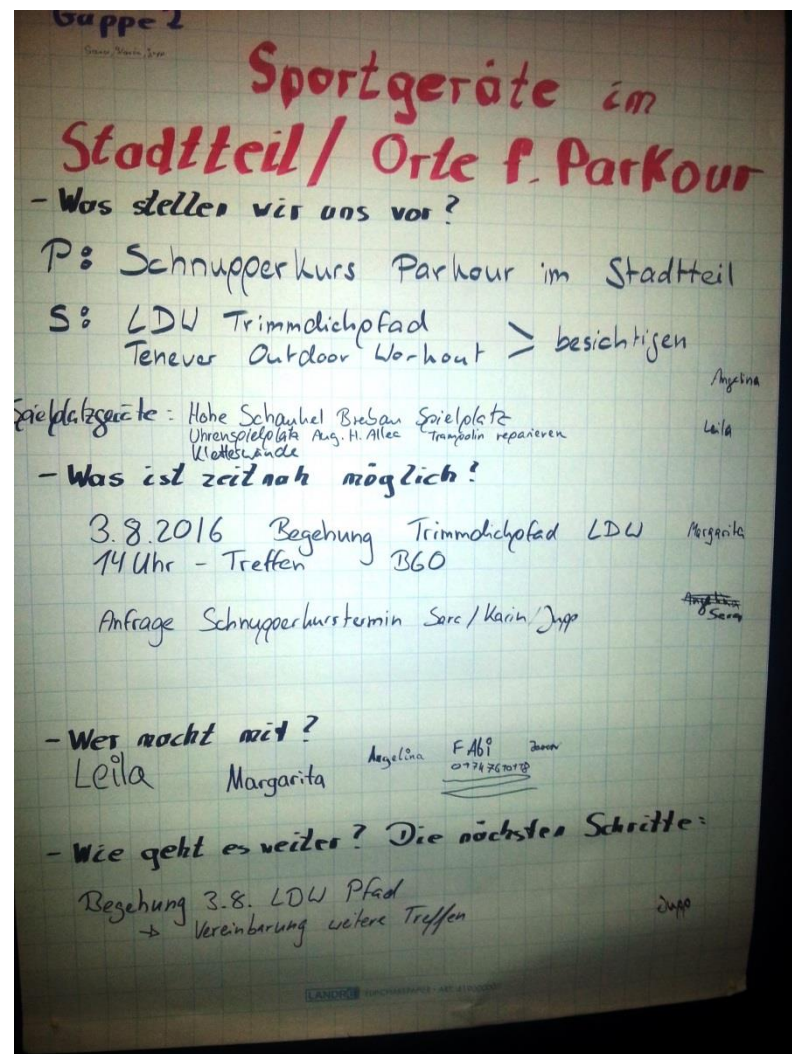 Gruppe 2
Sportgeräte im
Stadtteil / Orte f. Parkour
- Was stellen wir uns vor?
P: Schnupperkurs Parkour im Stadtteil
S: LDW Trimmdichpfad
Tenever Outdoor Workout > besichtigen
Angelina
Spielplatzgeräte: Hohe Schaukel Breban Spielplatz
Leila
Uhrenspielplatz Aug. H. Allee Trampolin reparieren
Kletterwände
- Was ist zeitnah möglich?
3.8.2016 Begehung Trimmdichpfad LDW Margarita
14 Uhr - Treffen BGO
Anfrage Schnupperkurstermin / Karin / Jupp
- Wer macht mit?
Leila Margarita Angelina FAbi
- Wie geht es weiter? Die nächsten Schritte:
Begehung 3.8. LDW Pfad
→ Vereinbarung weitere Treffen
Jupp
LANDRÉ